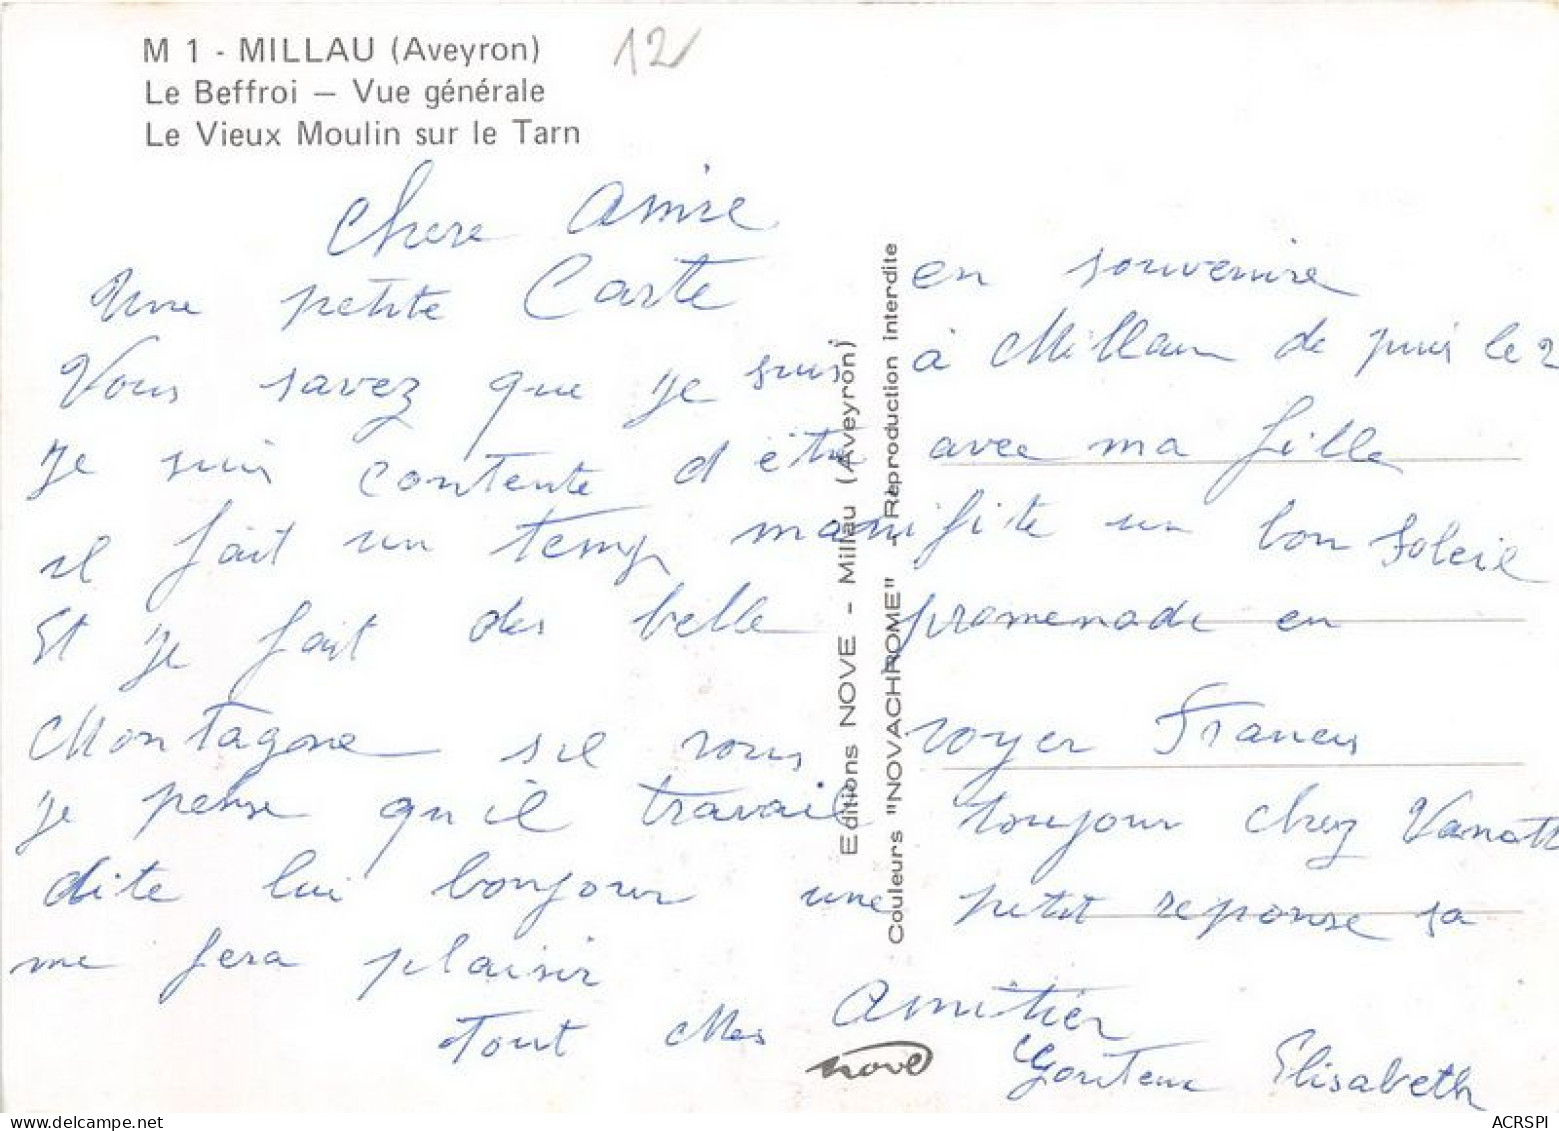 M 1 - MILLAU (Aveyron)
Le Beffroi — Vue générale
Le Vieux Moulin sur le Tarn
12
Chere Amie
Une petite Carte en souvenire
Vous savez que je suis à Millau de puis le 2
Je suis contente d être avec ma fille
il fait un temp manifite un bon Soleil
Et je fait des belle promenade en
Montagne sil vous voyer Francis
je pense qu il travail toujour chez Vanat
dite lui bonjour une petit reponse sa
me fera plaisir
Tout Mes Amitier
Elisabeth
Editions NOVE – Millau (Aveyron)
Couleurs "NOVACHROME" - Reproduction interdite
nove
ACRSPI